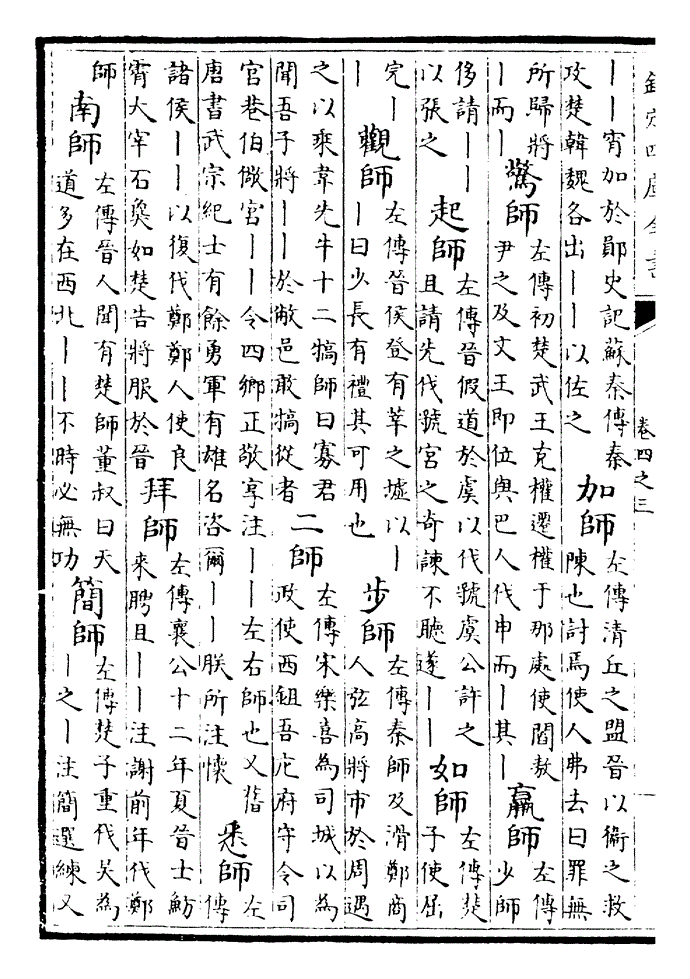 欽定四庫全書 卷四之三
丨丨宵加於鄖史記蘇秦傳秦
攻楚韓魏各出丨丨以佐之
加師
左傳清丘之盟晉以衛之救
陳也討焉使人弗去曰罪無
所歸將
丨而丨
驚師
左傳初楚武王克權遷權于那處使閻敖
尹之及文王即位與巴人伐申而丨其丨
羸師
左傳
少師
侈請丨丨
以張之
起師
左傳晉假道於虞以伐虢虞公許之
且請先伐虢宮之奇諫不聽遂丨丨
如師
左傳楚
子使屈
完丨
丨
觀師
左傳晉侯登有莘之墟以丨
丨曰少長有禮其可用也
步師
左傳秦師及滑鄭商
人弦高將市於周遇
之以乘韋先牛十二犒師曰寡君
聞吾子將丨丨於敝邑敢犒從者
二師
左傳宋樂喜為司城以為
政使西鉏吾庀府守令司
宮巷伯儆宮丨丨令四鄉正敬享注丨丨左右師也又舊
唐書武宗紀士有餘勇軍有雄名咨爾丨丨朕所注懷
悉師
左
傳
諸侯丨丨以復伐鄭鄭人使良
霄大宰石㚟如楚告將服於晉
拜師
左傳襄公十二年夏晉士魴
來聘且丨丨注謝前年伐鄭
師
南師
左傳晉人聞有楚師董叔曰天
道多在西北丨丨不時必無功
簡師
左傳楚子重伐吳為
丨之丨注簡選練又